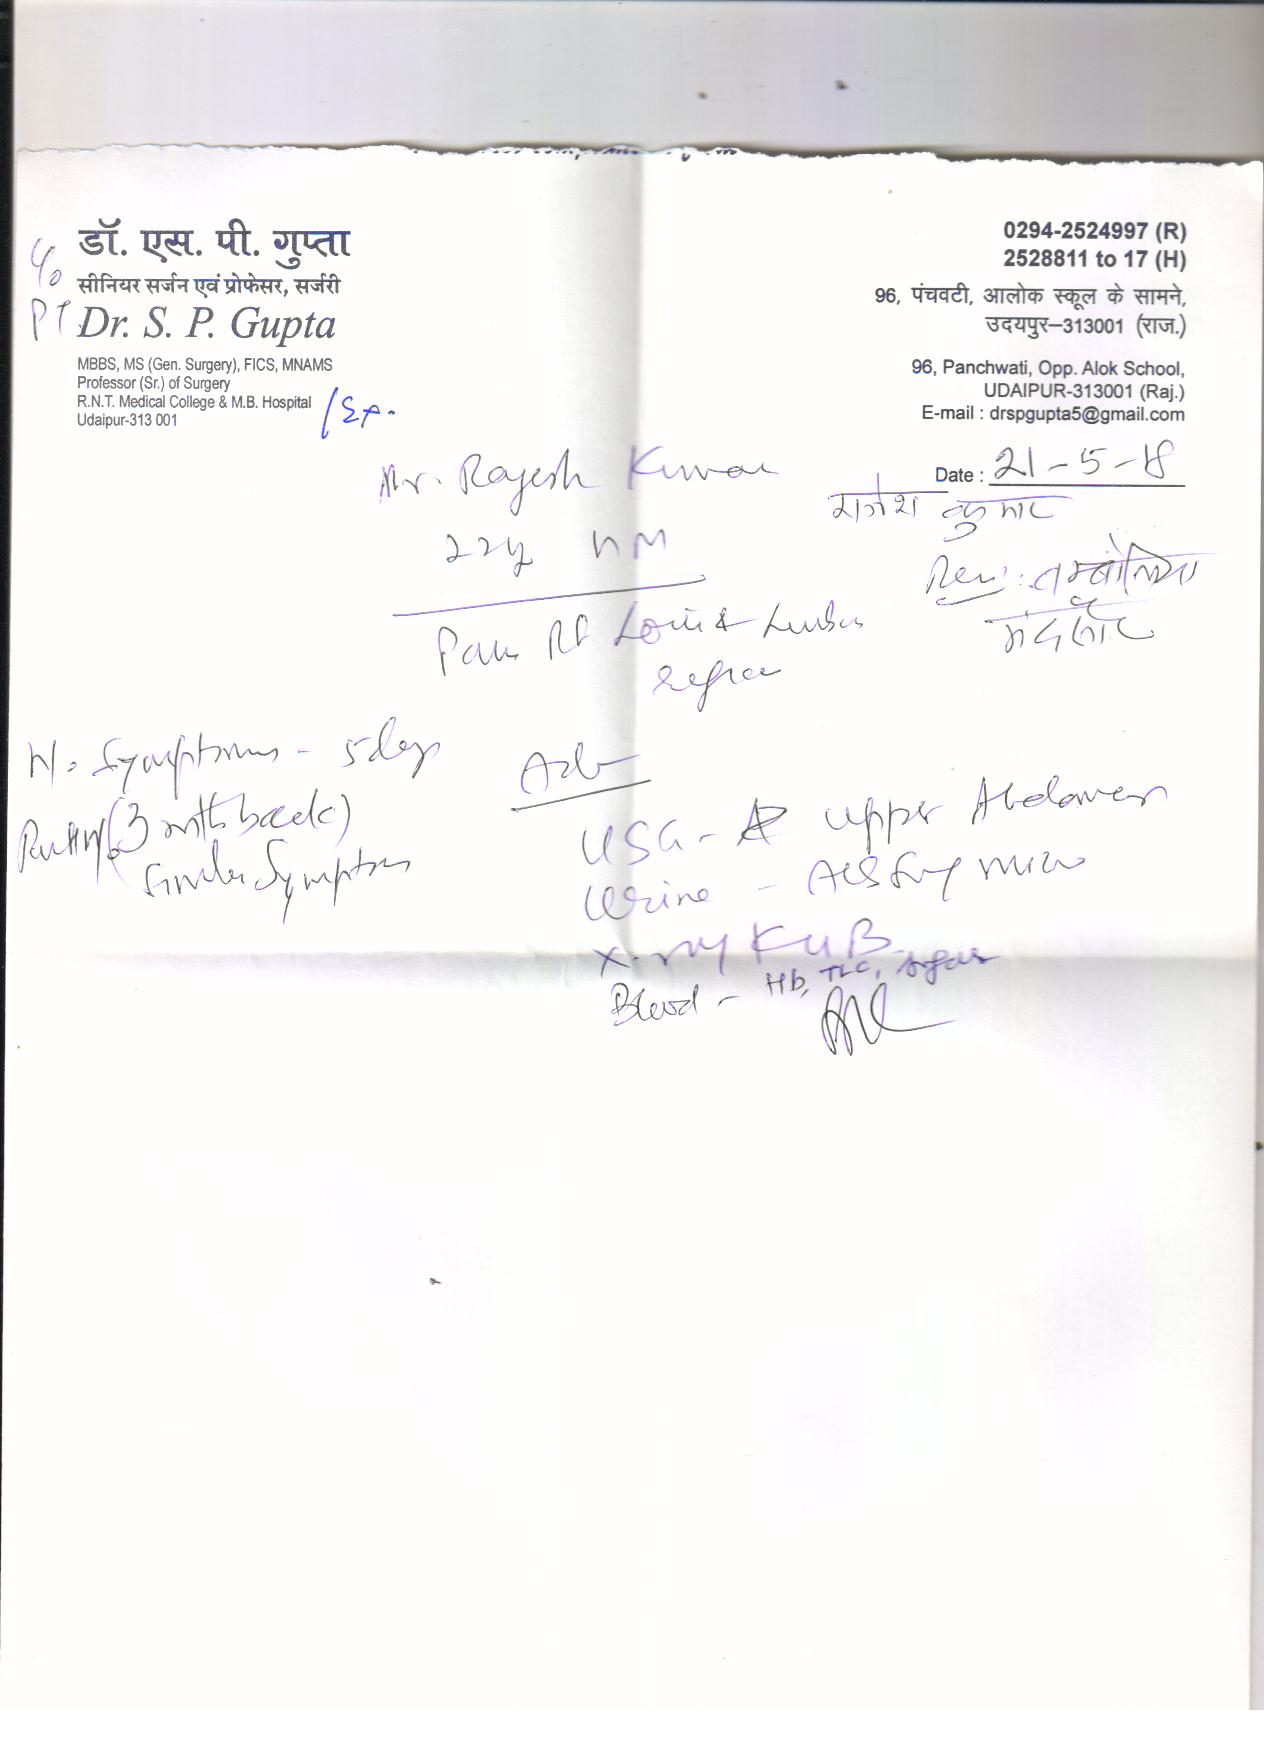 डॉ. एस. पी. गुप्ता
सीनियर सर्जन एवं प्रोफेसर, सर्जरी
Dr. S. P. Gupta
MBBS, MS (Gen. Surgery), FICS, MNAMS
Professor (Sr.) of Surgery
R.N.T. Medical College & M.B. Hospital
Udaipur-313 001
0294-2524997 (R)
2528811 to 17 (H)
96, पंचवटी, आलोक स्कूल के सामने,
उदयपुर–313001 (राज.)
96, Panchwati, Opp. Alok School,
UDAIPUR-313001 (Raj.)
E-mail : drspgupta5@gmail.com
Date : 21-5-18
Mr. Rajesh Kumar
राजेश कुमार
22y
Pain Rt Loin & Lumbar
region
Symptoms - 5 days
(3 mth back)
Similar Symptoms
Adv
USG - upper Abdomen
Urine - Alb Sug micro
X-ray KUB
Blood - Hb, TLC, sugar